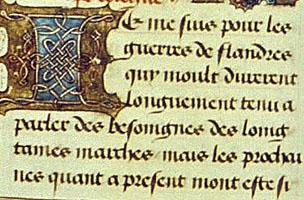 Je me suis pour les
guerres de flandres
qui moult durerent
longuement tenu a
parler des besoingnes des loing
taines marches mais les prochai
nes quant a present mont este si